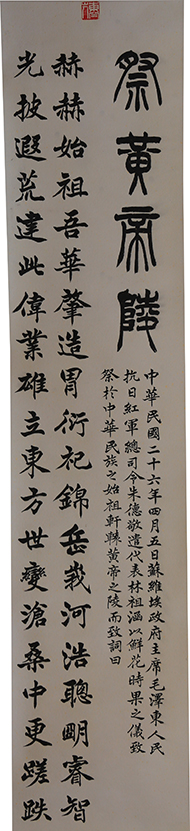 祭黃帝陵
中華民國二十六年四月五日蘇維埃政府主席毛澤東人民
抗日紅軍總司令朱德敬遣代表林祖涵以鮮花時果之儀致
祭於中華民族之始祖軒轅黃帝之陵而致詞曰
赫赫始祖吾華肇造胄衍祀錦岳峩河浩聰明睿智
光披遐荒建此偉業雄立東方世變滄桑中更蹉跌